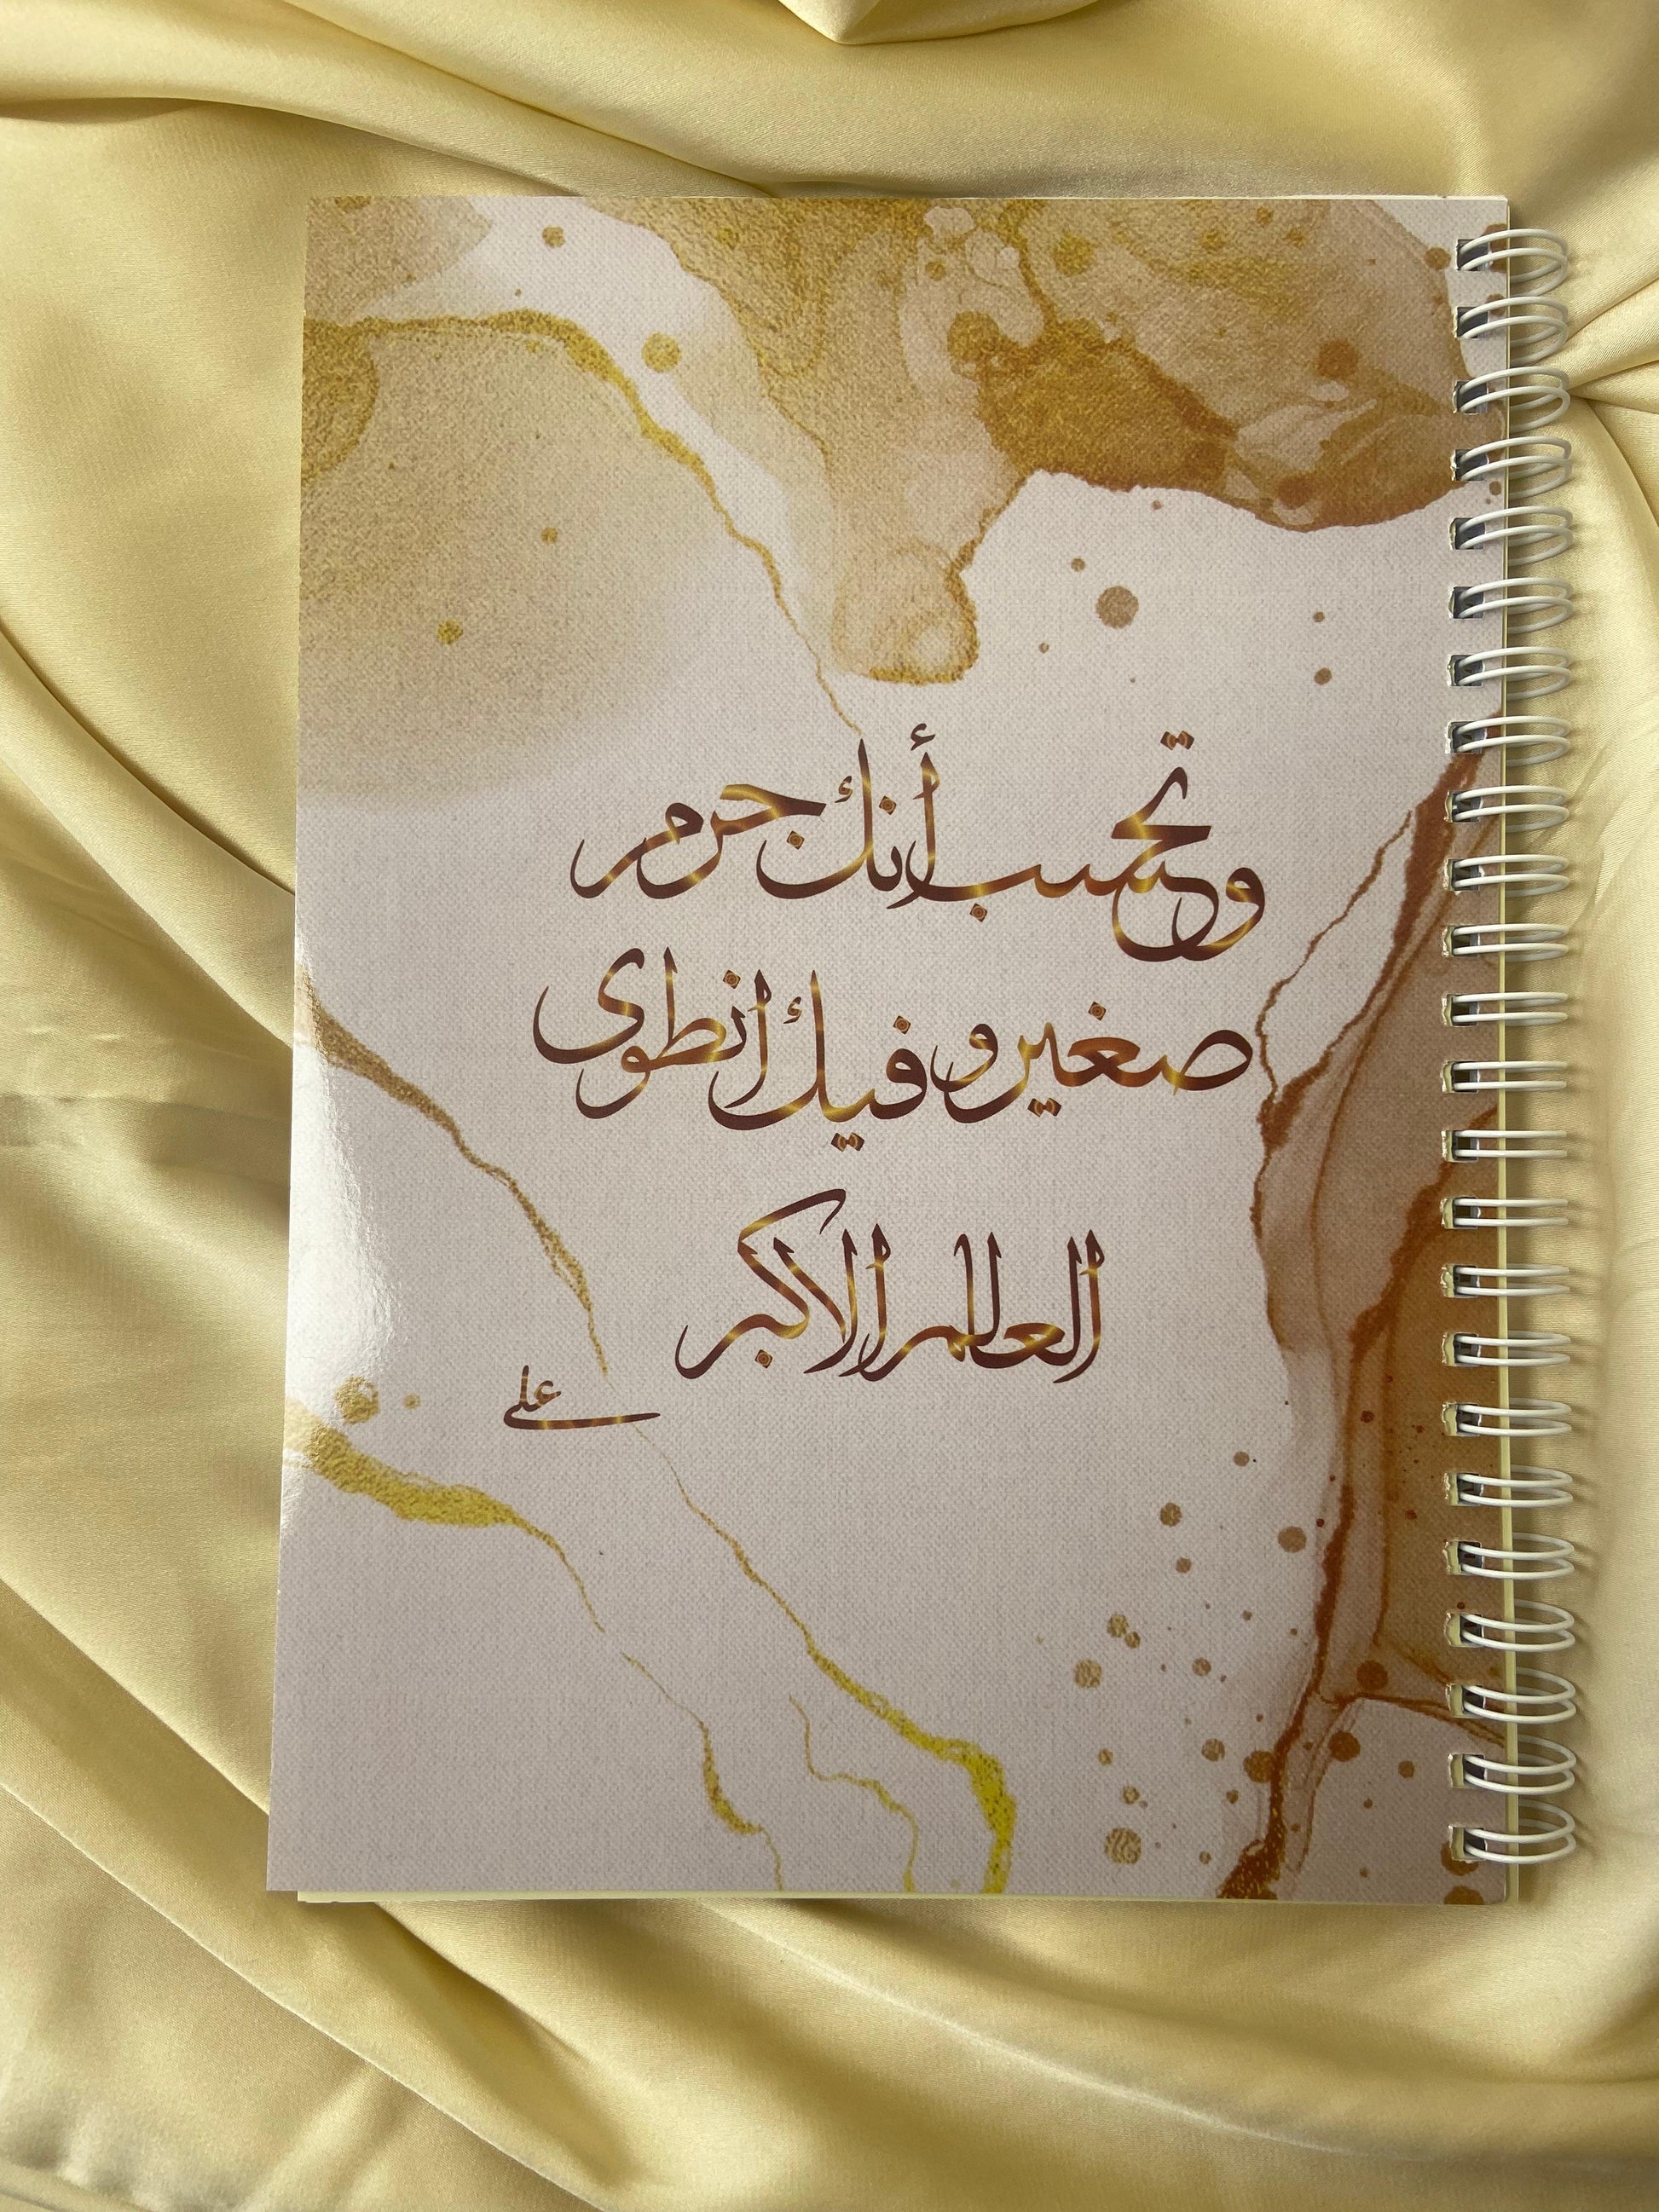 وتحسب أنك جرم
صغير و فيك انطوى
العالم الاكبر
علي